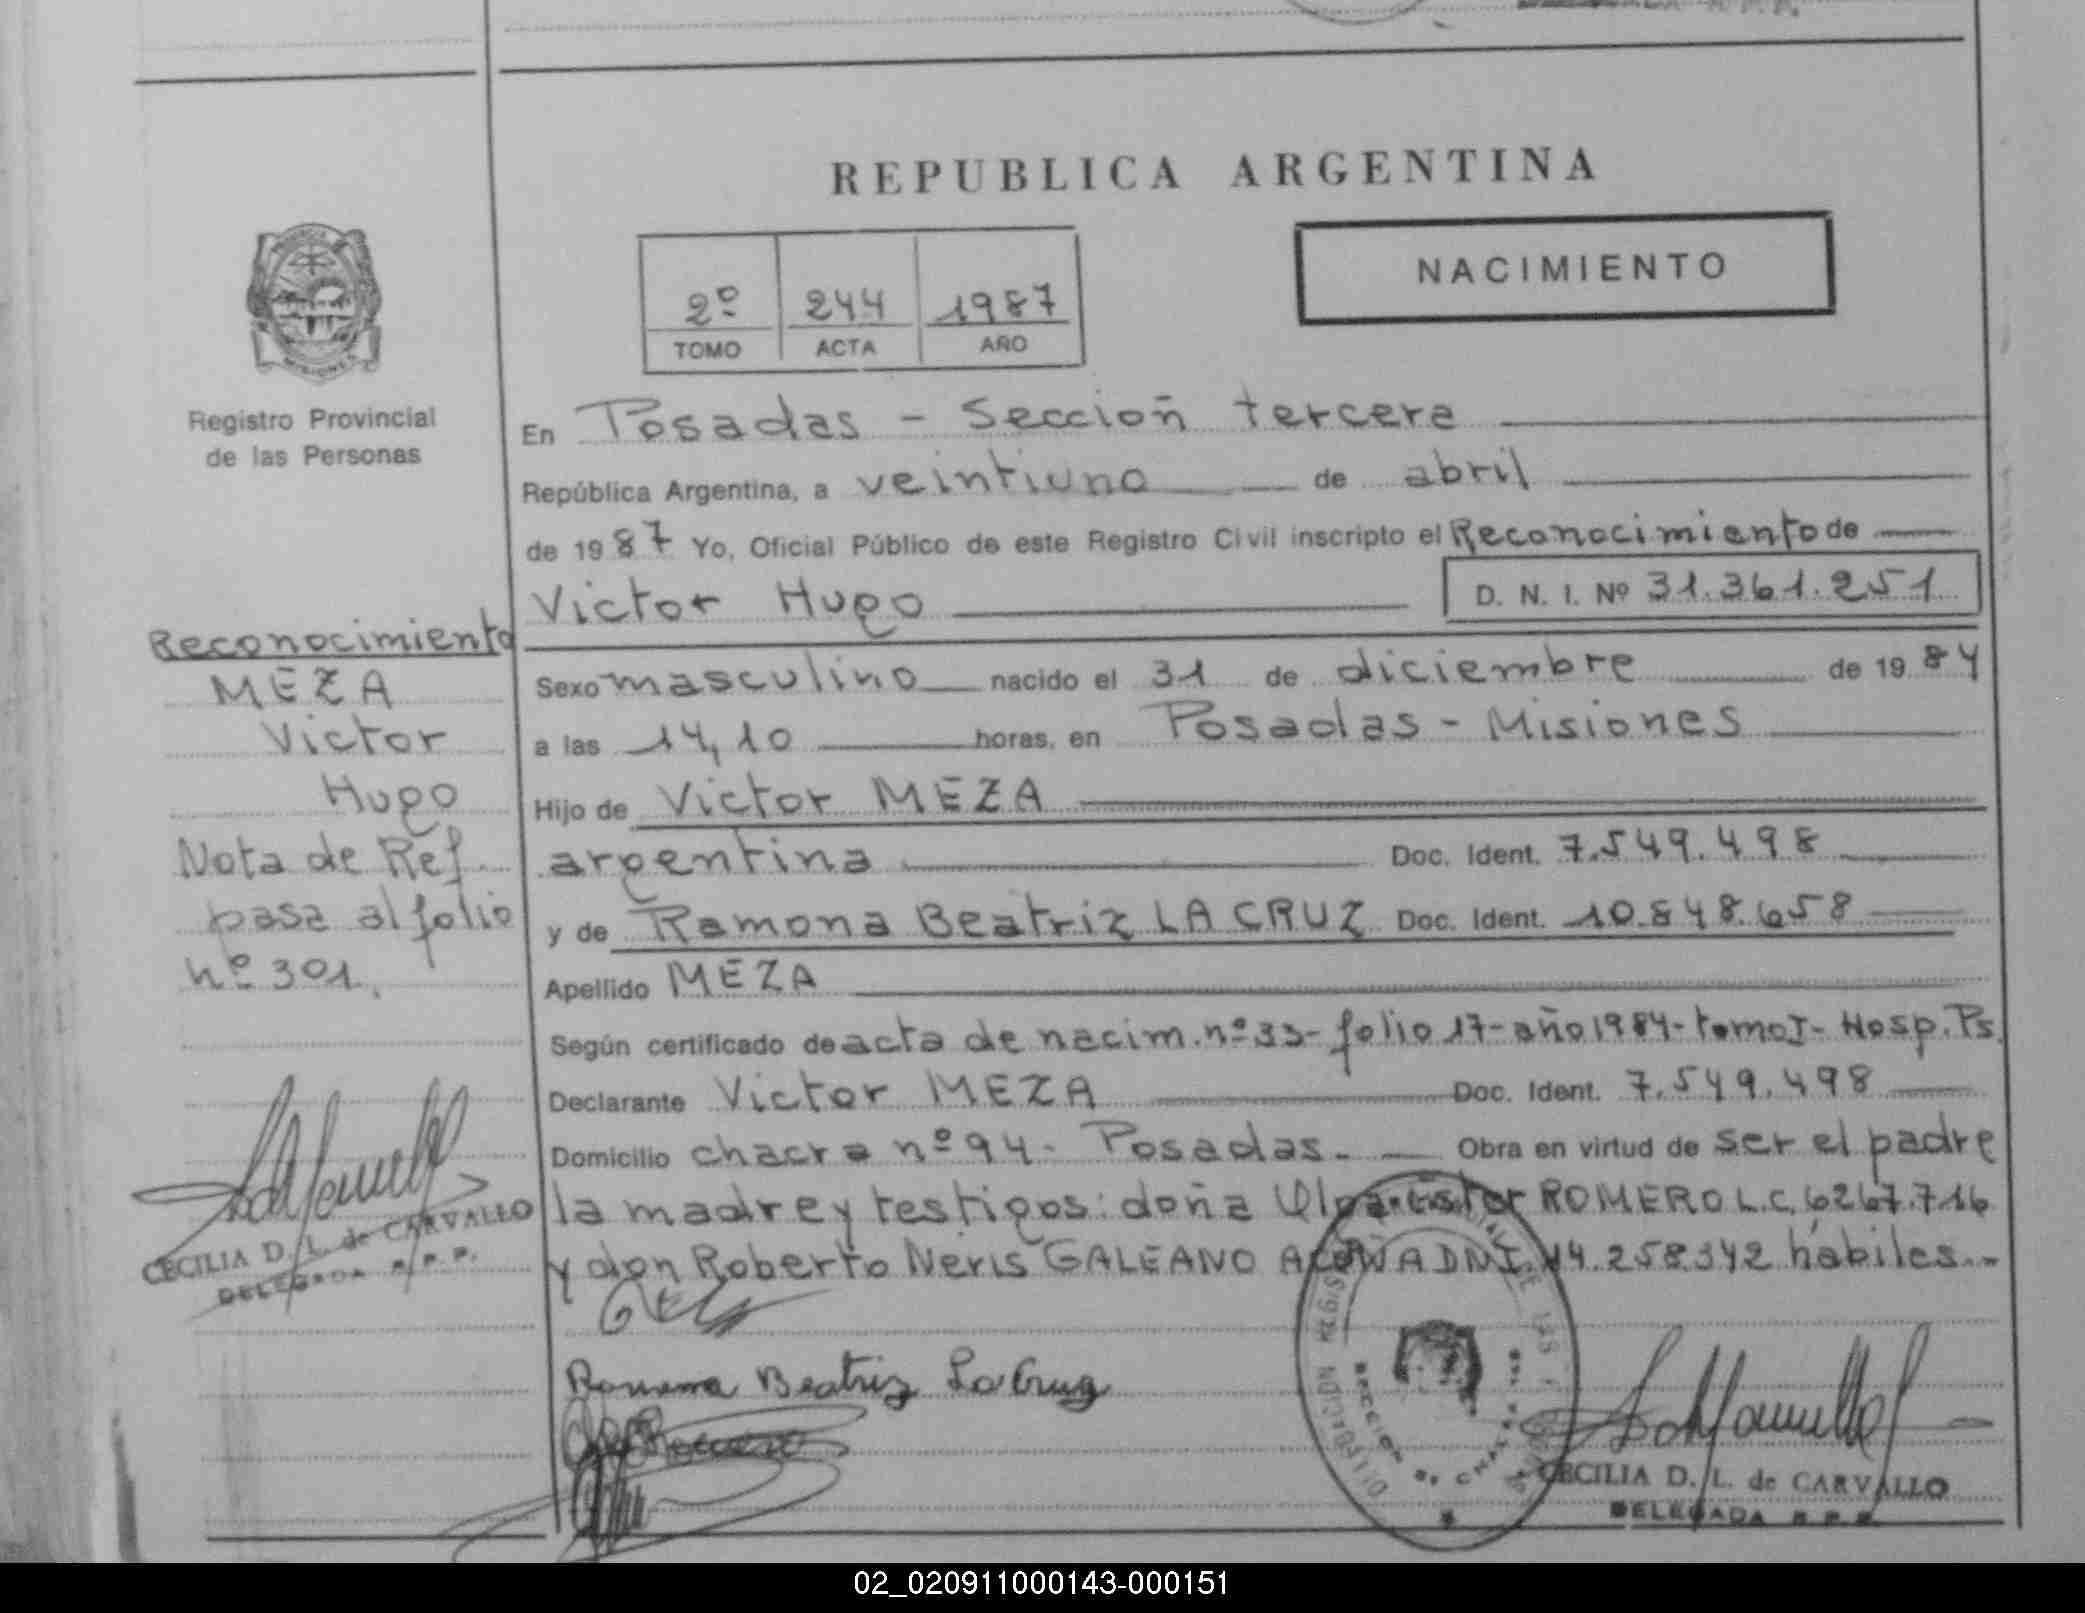 REPUBLICA ARGENTINA
PROVINCIA
MISIONES
Registro Provincial
de las Personas
2º 244 1987
TOMO ACTA AÑO
NACIMIENTO
En Posadas - Sección tercera
República Argentina, a veintiuno de abril
de 1987 Yo, Oficial Público de este Registro Civil inscripto el Reconocimiento de
Victor Hugo D. N. I. Nº 31.361.251
Sexo masculino nacido el 31 de diciembre de 1984
a las 14,10 horas, en Posadas - Misiones
Hijo de Victor MEZA
argentina Doc. Ident. 7.549.498
y de Ramona Beatriz LA CRUZ Doc. Ident. 10.848.658
Apellido MEZA
Según certificado de acta de nacim. nº 33- folio 17- año 1984- tomo I- Hosp. Ps.
Declarante Victor MEZA Doc. Ident. 7.549.498
Domicilio chacra nº 94- Posadas.- Obra en virtud de ser el padre
la madre y testigos: doña Ester ROMERO L.C. 6267.716
y don Roberto Neris GALEANO DNI. 14.258.342 hábiles.-
Reconocimiento
MEZA
Victor
Hugo
Nota de Ref.
pasa al folio
nº 301.
CECILIA D. L. de CARVALLO
DELEGADA R.P.P.
Ramona Beatriz La Cruz
CECILIA D. L. de CARVALLO
DELEGADA R.P.P.
02_020911000143-000151